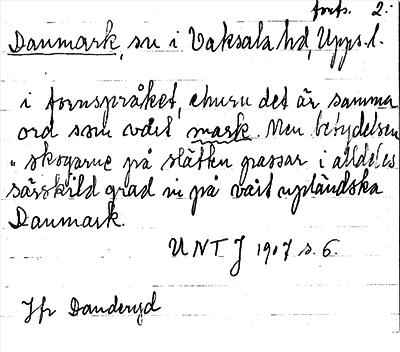 forts. 2:
Danmark, sn i Vaksala hd, Upps. l.
i fornspråket, churu det är samma
ord som vårt mark. Men betydelsen
"skogarne på slätten passar i alldeles
särskild grad in på vårt upländska
Danmark.
UNT J 1907 s. 6.
Jfr Danderyd